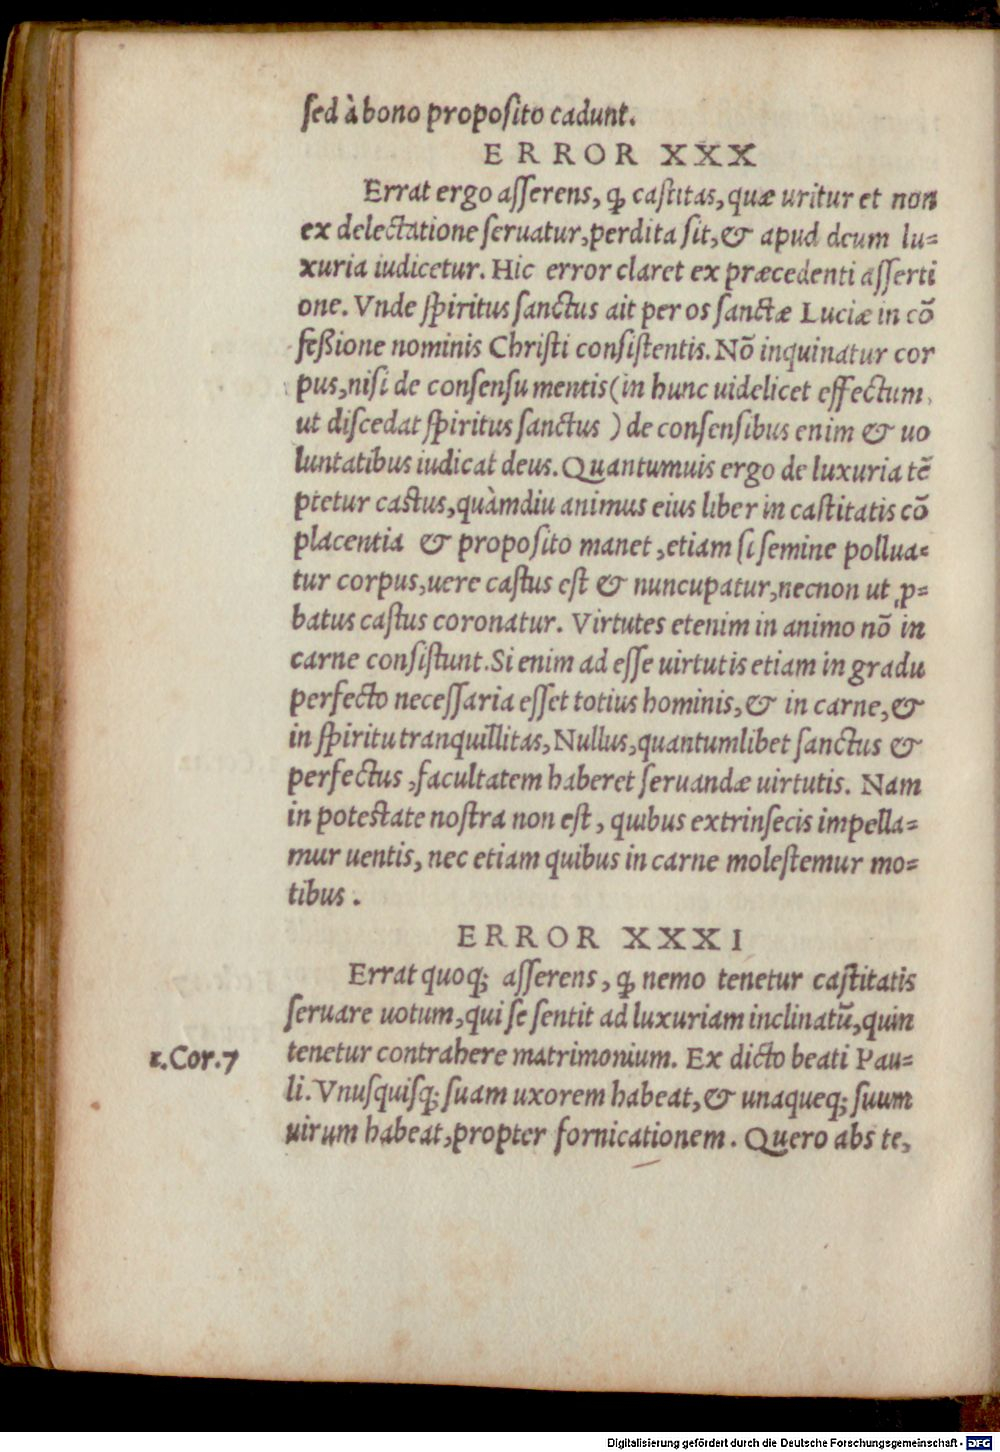 ſed à bono propoſito cadunt.
ERROR XXX
Errat ergo aſſerens, ꝙ caſtitas, quæ uritur et non
ex delectatione ſeruatur, perdita ſit, & apud deum lu=
xuria iudicetur. Hic error claret ex præcedenti aſſerti
one. Vnde ſpiritus ſanctus ait per os ſanctæ Luciæ in cō
feßione nominis Chriſti conſiſtentis. Nō inquinatur cor
pus, niſi de conſenſu mentis (in hunc uidelicet effectum,
ut diſcedat ſpiritus ſanctus ) de conſenſibus enim & uo
luntatibus iudicat deus. Quantumuis ergo de luxuria tē
ptetur caſtus, quàmdiu animus eius liber in caſtitatis cō
placentia & propoſito manet, etiam ſi ſemine pollua=
tur corpus, uere caſtus eſt & nuncupatur, necnon ut ꝓ=
batus caſtus coronatur. Virtutes etenim in animo nō in
carne conſiſtunt. Si enim ad eſſe uirtutis etiam in gradu
perfecto neceſſaria eſſet totius hominis, & in carne, &
in ſpiritu tranquillitas, Nullus, quantumlibet ſanctus &
perfectus, facultatem haberet ſeruandæ uirtutis. Nam
in poteſtate noſtra non eſt, quibus extrinſecis impella=
mur uentis, nec etiam quibus in carne moleſtemur mo=
tibus.
ERROR XXXI
Errat quoq; aſſerens, ꝙ nemo tenetur caſtitatis
ſeruare uotum, qui ſe ſentit ad luxuriam inclinatū, quin
1.Cor.7 tenetur contrahere matrimonium. Ex dicto beati Pau=
li. Vnuſquiſq; ſuam uxorem habeat, & unaqueq; ſuum
uirum habeat, propter fornicationem. Quero abs te,
Digitalisierung gefördert durch die Deutsche Forschungsgemeinschaft - DFG